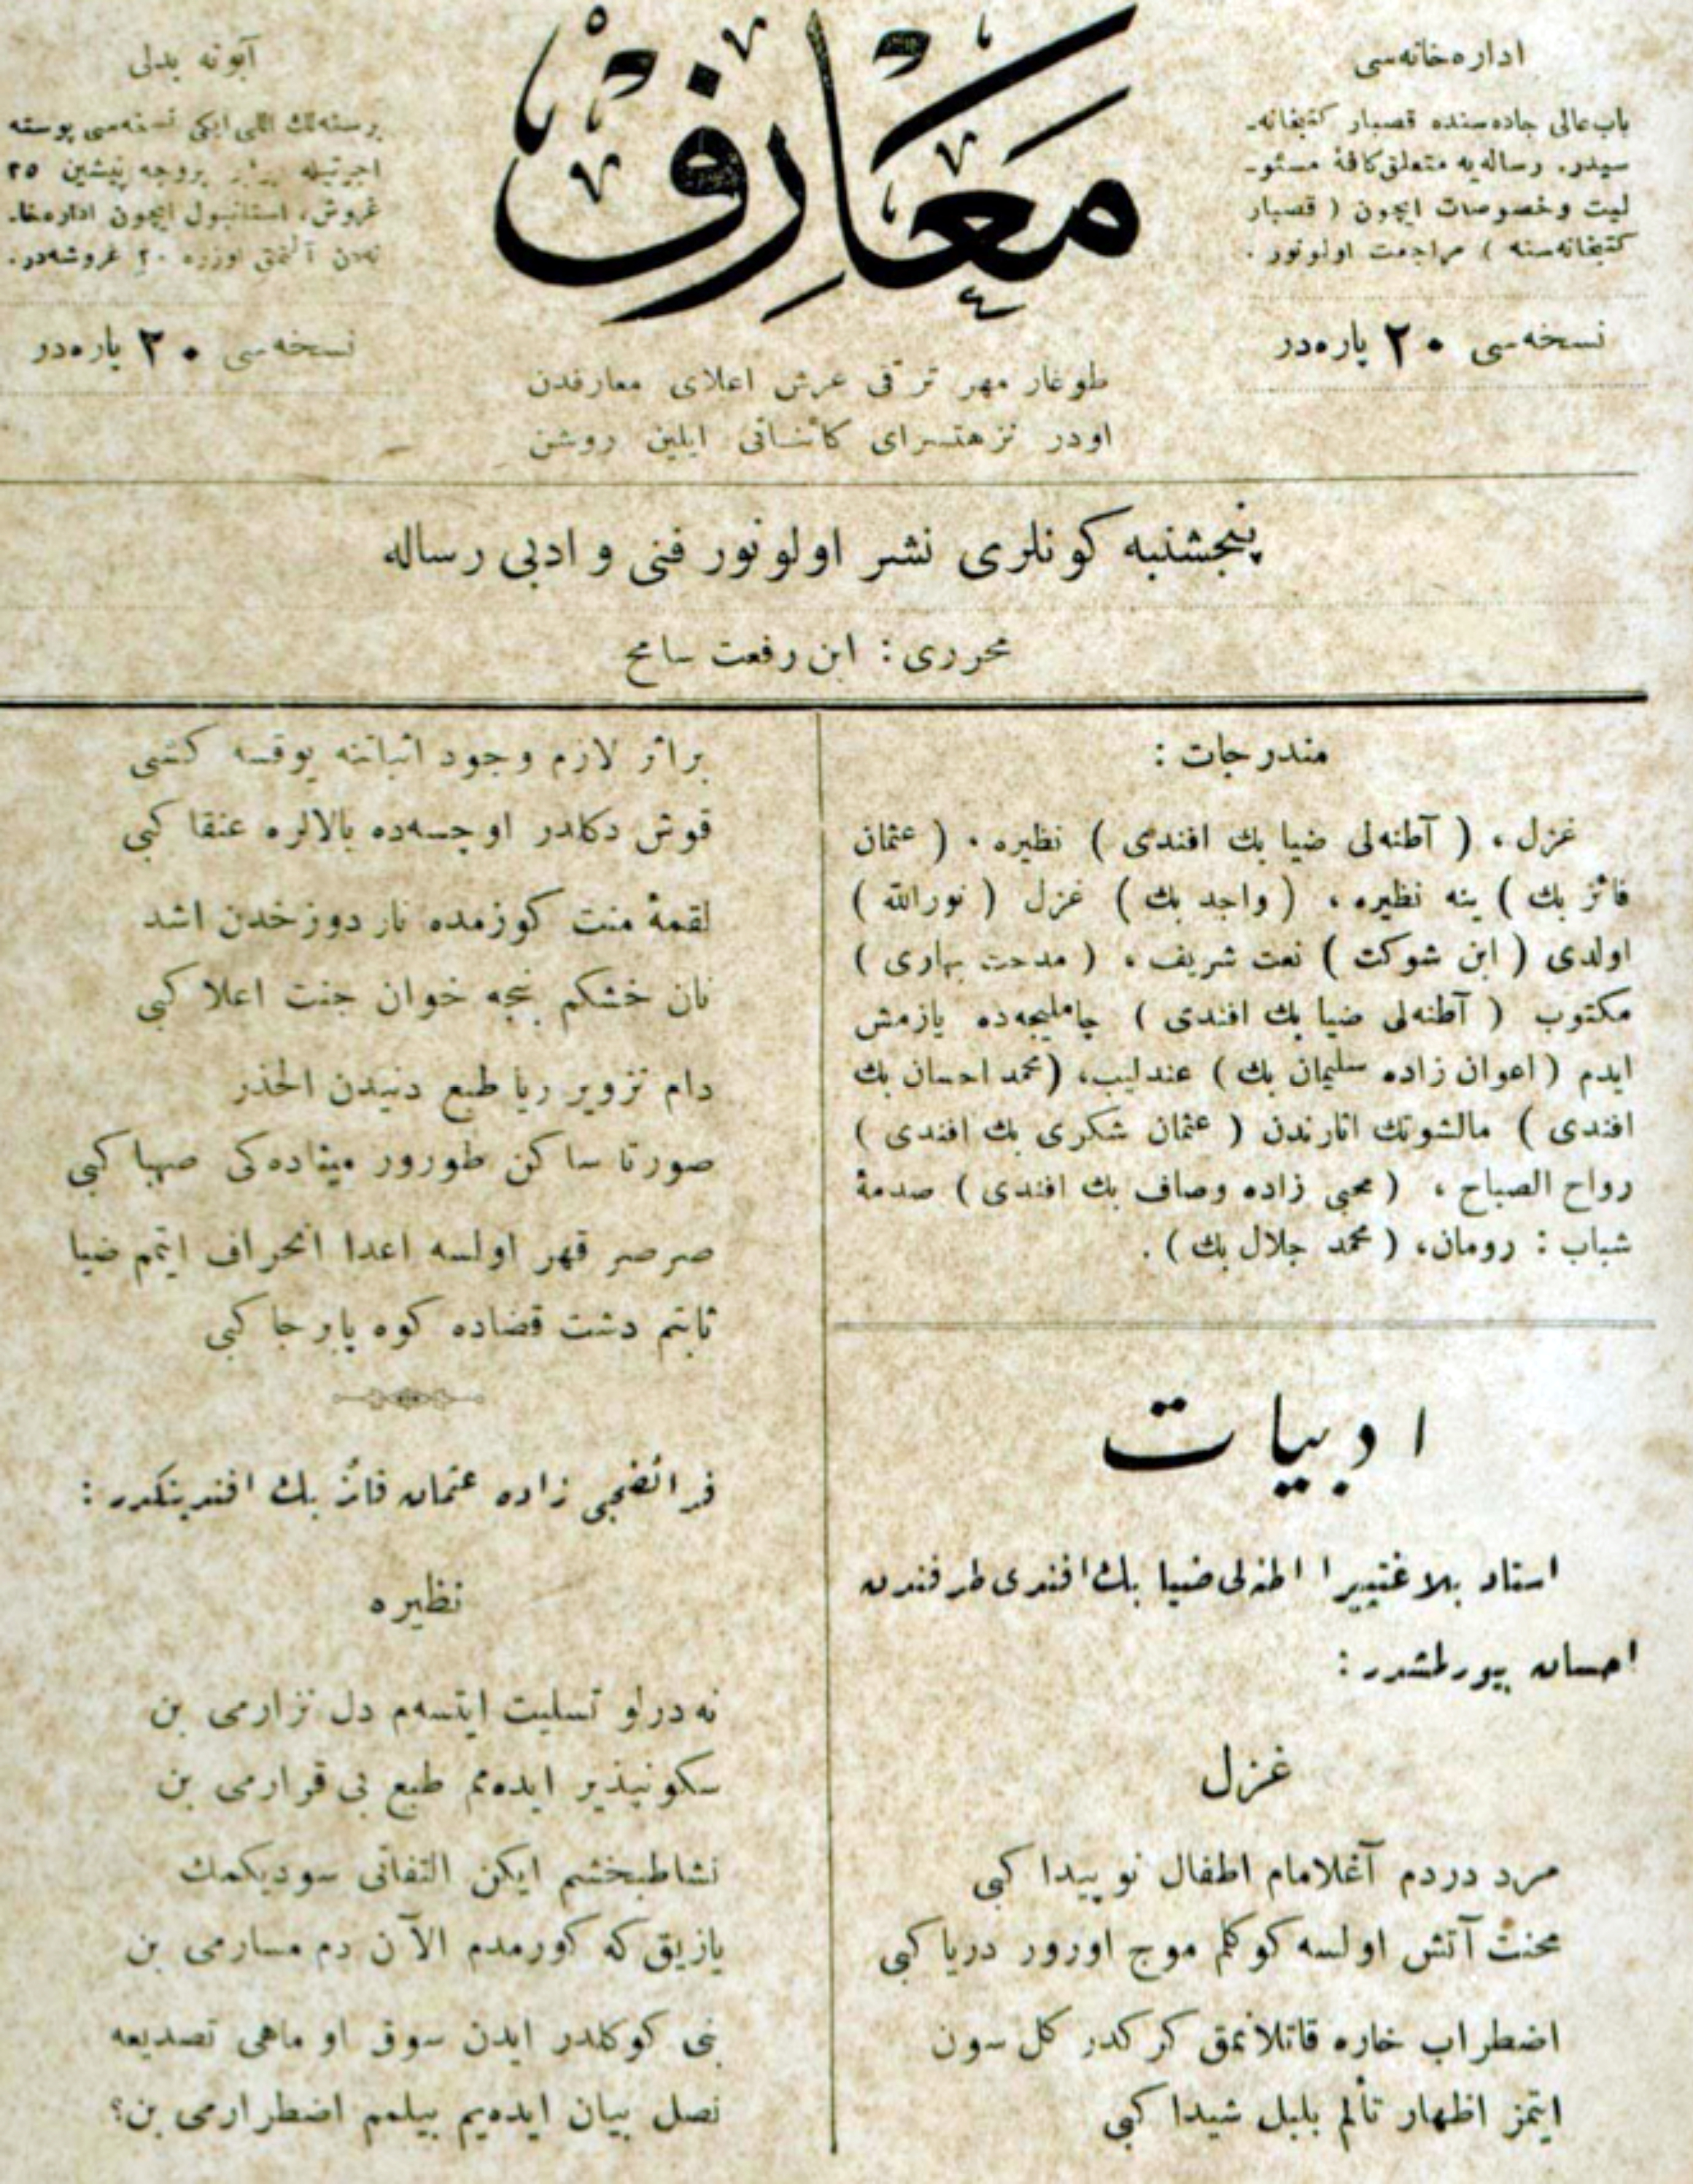 معارف
اداره‌خانه‌سی
باب عالی جاده‌سنده قصبار كتبخانه‌-
سیدر. رساله‌یه متعلق كافۀ مسئو-
لیت و خصوصات ایچون ( قصبار
كتبخانه‌سنه ) مراجعت اولونور .
نسخه‌سی ٢٠ پاره‌در
آبونه بدلی
بر سنه‌لك اللی ایكی نسخه‌سی پوسته
اجرتیله بروجه پیشین ٢٥
غروش، استانبول ایچون اداره‌خا-
نه‌دن آلنمق اوزره ٢٠ غروشه‌در.
نسخه‌سی ٢٠ پاره‌در
طوغار مهر ترقی عرش اعلای معارفدن
اودر نزهتسرای كائناتی ایلین روشن
پنجشنبه كونلری نشر اولونور فنی و ادبی رساله
محرری : ابن رفعت سامح
مندرجات :
غزل ، ( آطنه‌لی ضیا بك افندی ) نظیره ، ( عثمان
فائز بك ) ینه نظیره ، ( واجد بك ) غزل ( نورالله )
اولدی ( ابن شوكت ) نعت شریف ، ( مدحت بهاری )
مكتوب ( آطنه‌لی ضیا بك افندی ) چاملیجه‌ده یازمش
ایدم ( اعوان زاده سلیمان بك ) عندلیب، ( محمد احسان بك
افندی ) مالشونك اثارندن ( عثمان شكری بك افندی )
رواح الصباح ، ( محیی زاده وصاف بك افندی ) صدمۀ
شباب : رومان، ( محمد جلال بك ) .
ادبیات
استاد بلاغتپیرا اطنه‌لی ضیا بك افندی طرفندن
احسان بیورلمشدر :
غزل
مرد دردم آغلامام اطفال نو پیدا كبی
محنت آتش اولسه كوكلم موج اورور دریا كبی
اضطراب خاره قاتلانمق كركدر كل سون
ایتمز اظهار تألم بلبل شیدا كبی
براثر لازم وجود اثباتنه یوقسه كشی
قوش دكلدر اوچسه‌ده بالالره عنقا كبی
لقمۀ منت كوزمده نار دوزخدن اشد
نان خشكم بجه خوان جنت اعلا كبی
دام تزویر ریا طبع دنیدن الحذر
صورتا ساكن طورور میناده‌كی صهبا كبی
صرصر قهر اولسه اعدا انحراف ایتمم ضیا
ثابتم دشت قضاده كوه پابرجا كبی
فرائضجی زاده عثمان فائز بك افندینكدر :
نظیره
نه درلو تسلیت ایتسه‌م دل نزارمی بن
سكونپذیر ایده‌مم طبع بی قرارمی بن
نشاطبخشم ایكن التفاتی سودیكمك
یازیق كه كورمدم الآن دم مسارمی بن
بنی كوكلدر ایدن سوق او ماهی تصدیعه
نصل بیان ایده‌یم بیلمم اضطرارمی بن؟